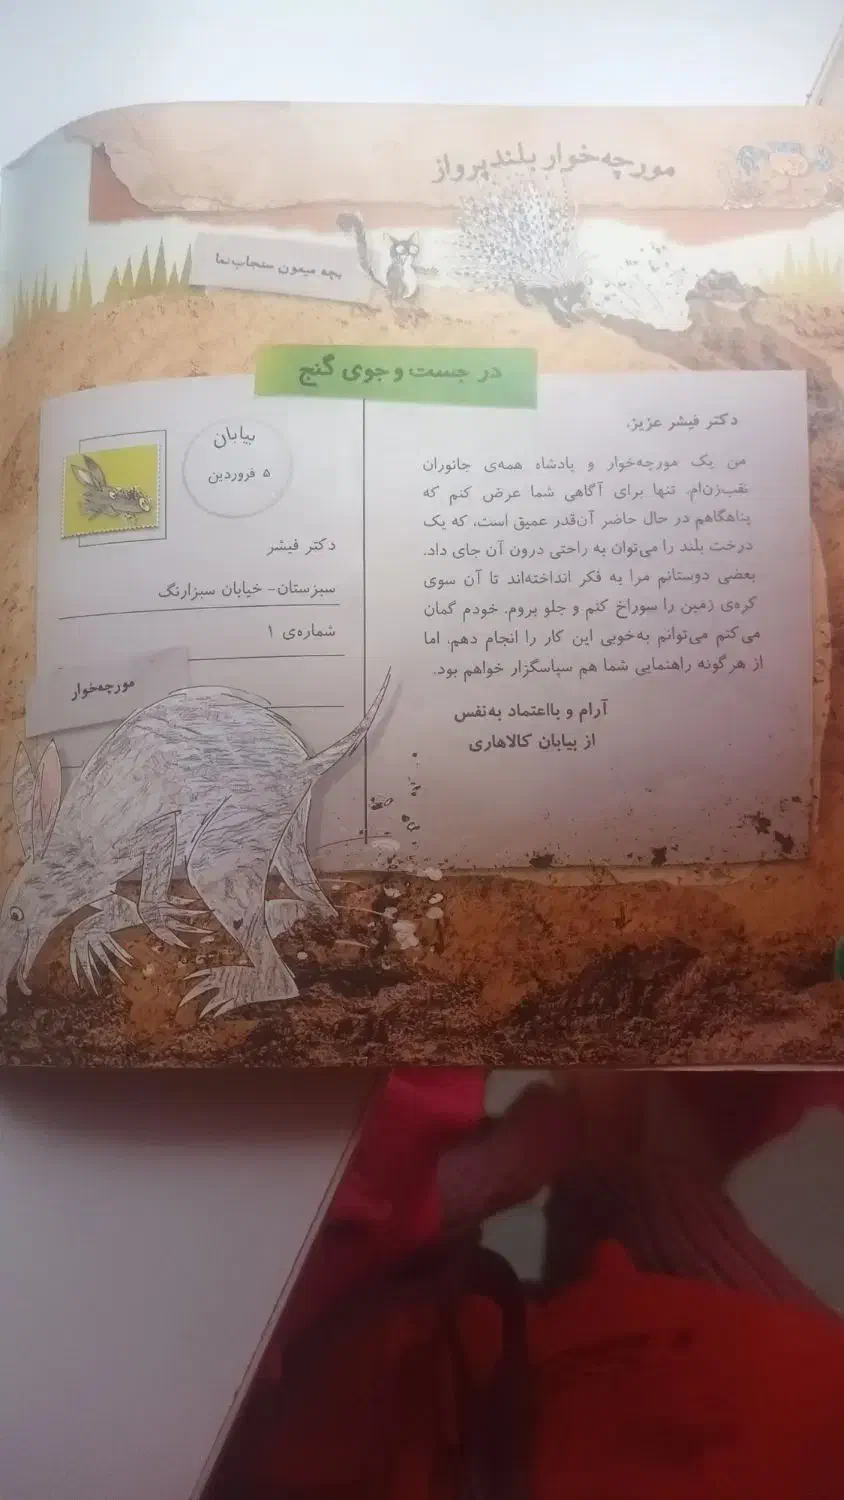 مورچه‌خوار بلندپرواز
بچه میمون سنجاب‌نما
در جست و جوی گنج
دکتر فیشر عزیز،
من یک مورچه‌خوار و پادشاه همه‌ی جانوران
نقب‌زن‌ام. تنها برای آگاهی شما عرض کنم که
پناهگاهم در حال حاضر آن‌قدر عمیق است، که یک
درخت بلند را می‌توان به راحتی درون آن جای داد.
بعضی دوستانم مرا به فکر انداخته‌اند تا آن سوی
کره‌ی زمین را سوراخ کنم و جلو بروم. خودم گمان
می‌کنم می‌توانم به‌خوبی این کار را انجام دهم، اما
از هر گونه راهنمایی شما هم سپاسگزار خواهم بود.
آرام و بااعتماد به‌نفس
از بیابان کالاهاری
بیابان
۵ فروردین
دکتر فیشر
سبزستان- خیابان سبزارنگ
شماره‌ی ۱
مورچه‌خوار